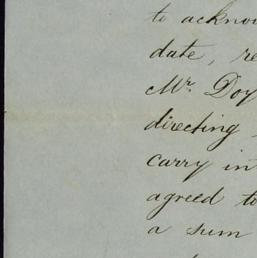 to acknow
date, re
Mr. Doy
directing
carry in
agreed to
a sum